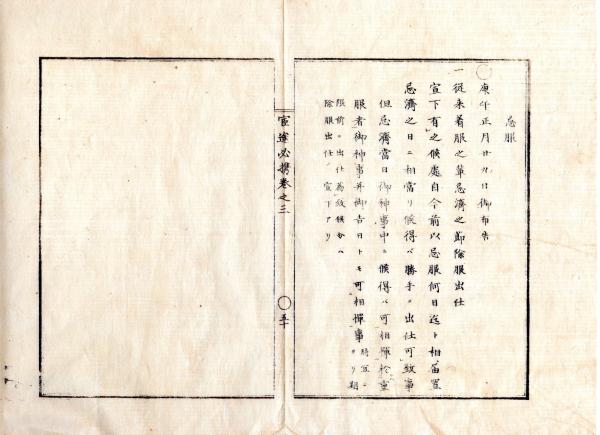 忌服
○庚午正月廿九日御布告
一従来着服之輩忌済之節除服出仕
宣下有之候処自今前以忌服何日迄ト相届置
忌済之日ニ相当リ候得ハ勝手ニ出仕可致事
但忌済當日御神事中ニ候得ハ可相憚於重
服者御神事并御吉日トモ可相憚事
時宜ニヨリ期
限前ニ出仕為致候分ハ
除服出仕 宣下アリ
宦途必携巻之三
○五十